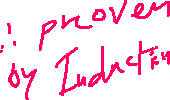 ∴ proven
by Induction